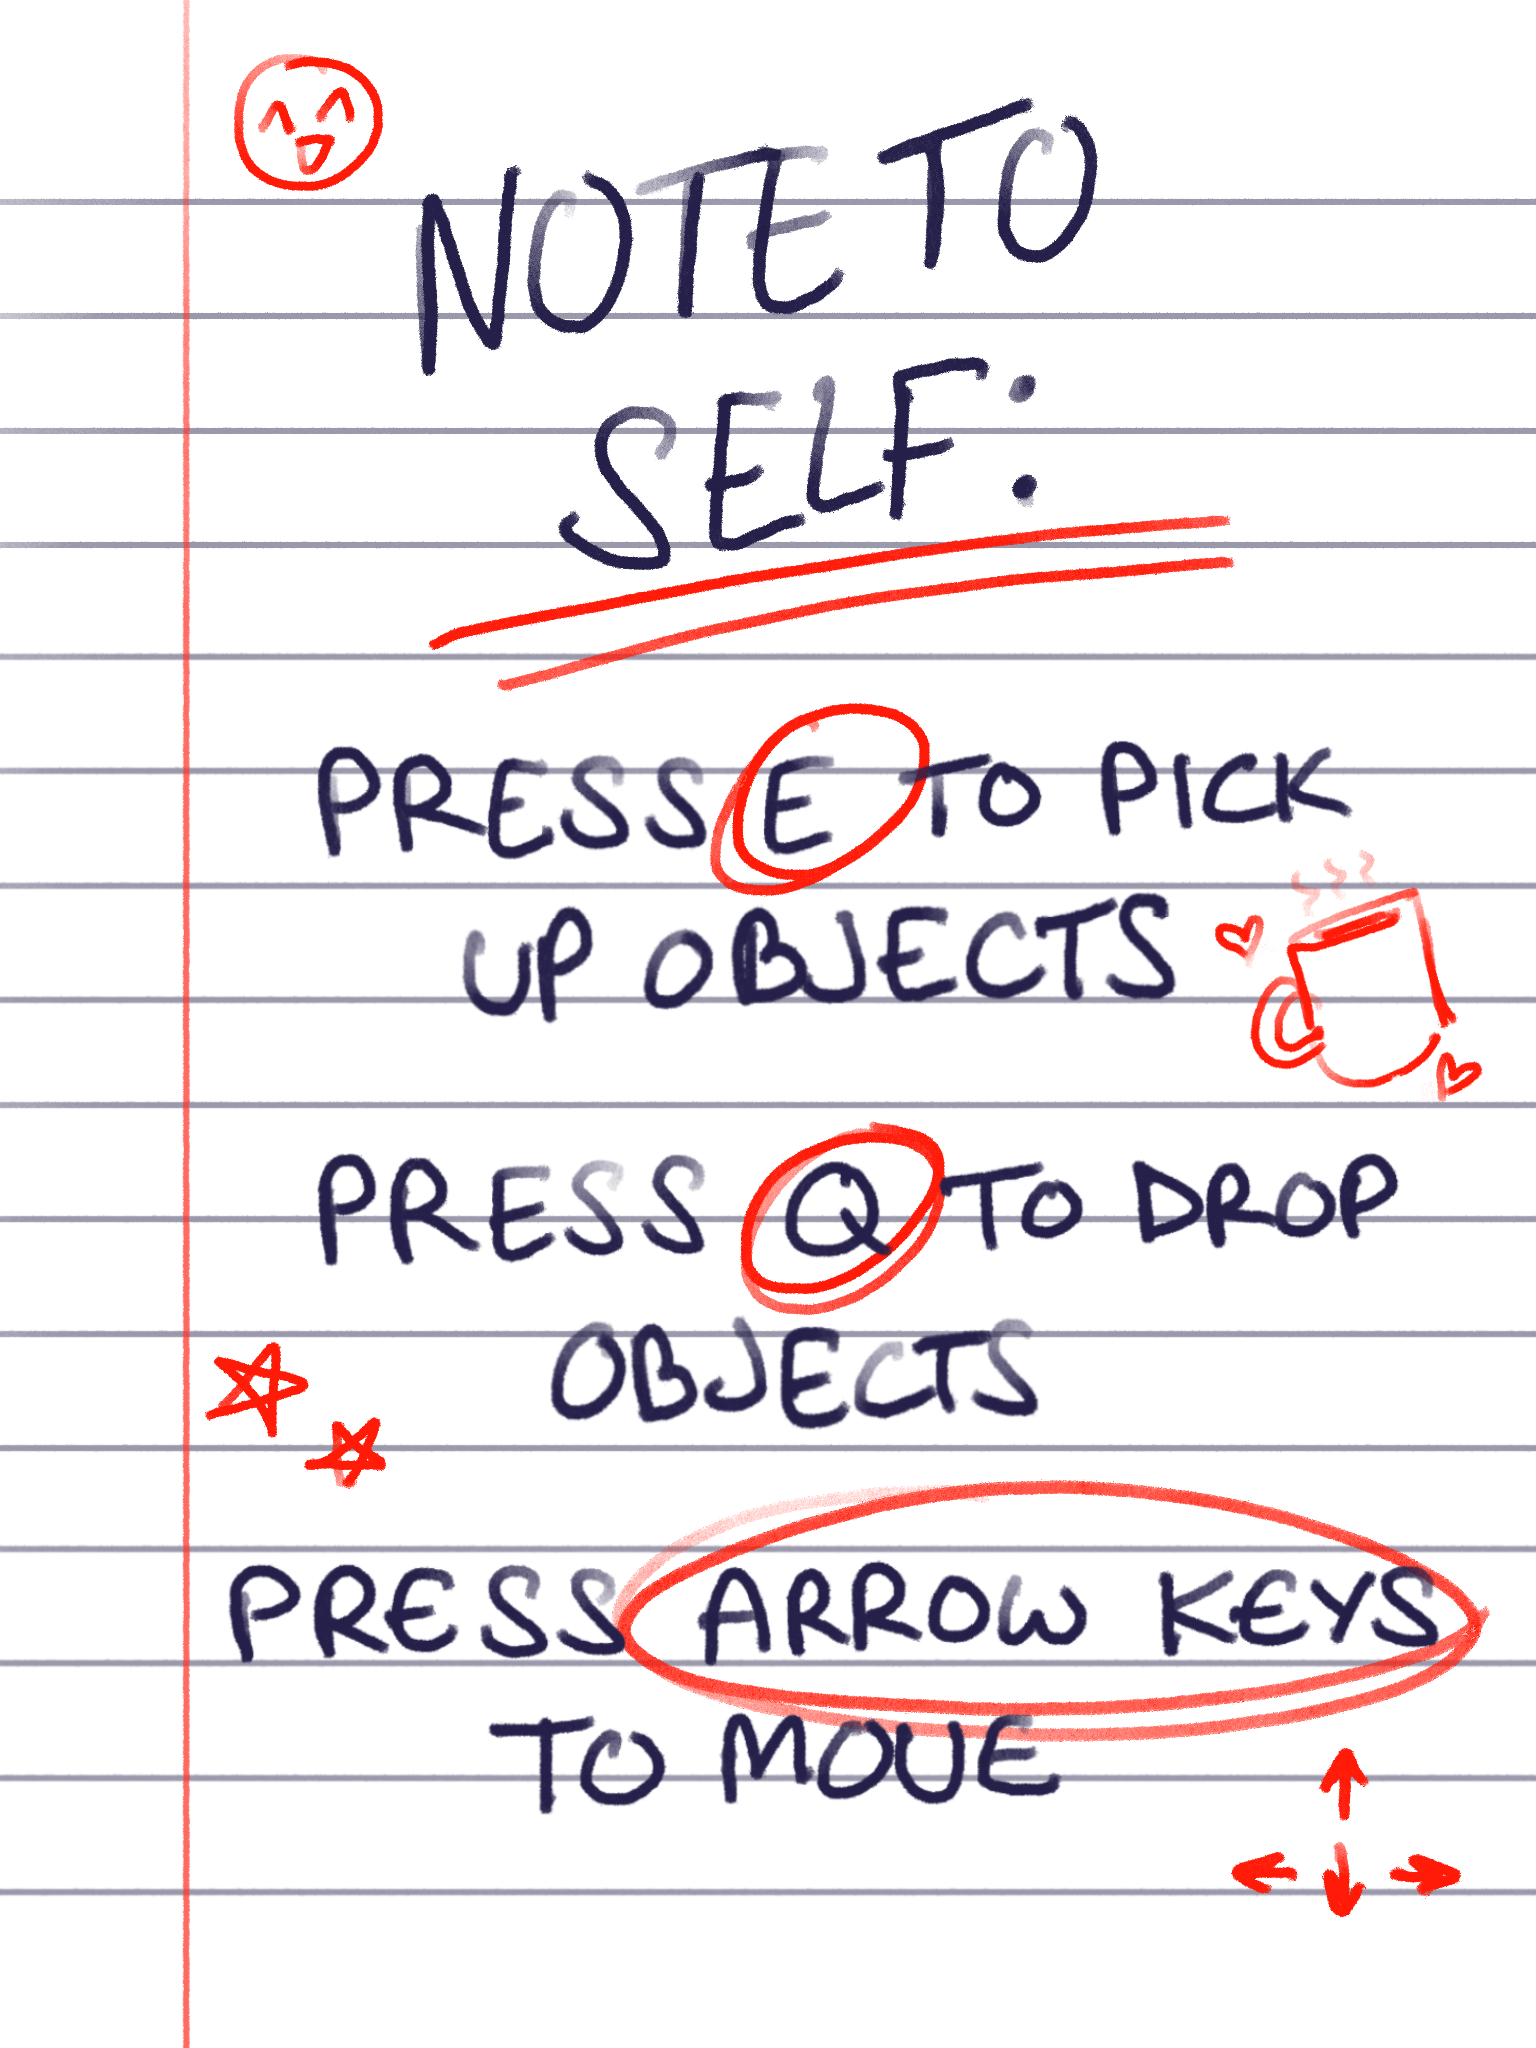 NOTE TO
SELF:
PRESS E TO PICK
UP OBJECTS
PRESS Q TO DROP
OBJECTS
PRESS ARROW KEYS
TO MOVE